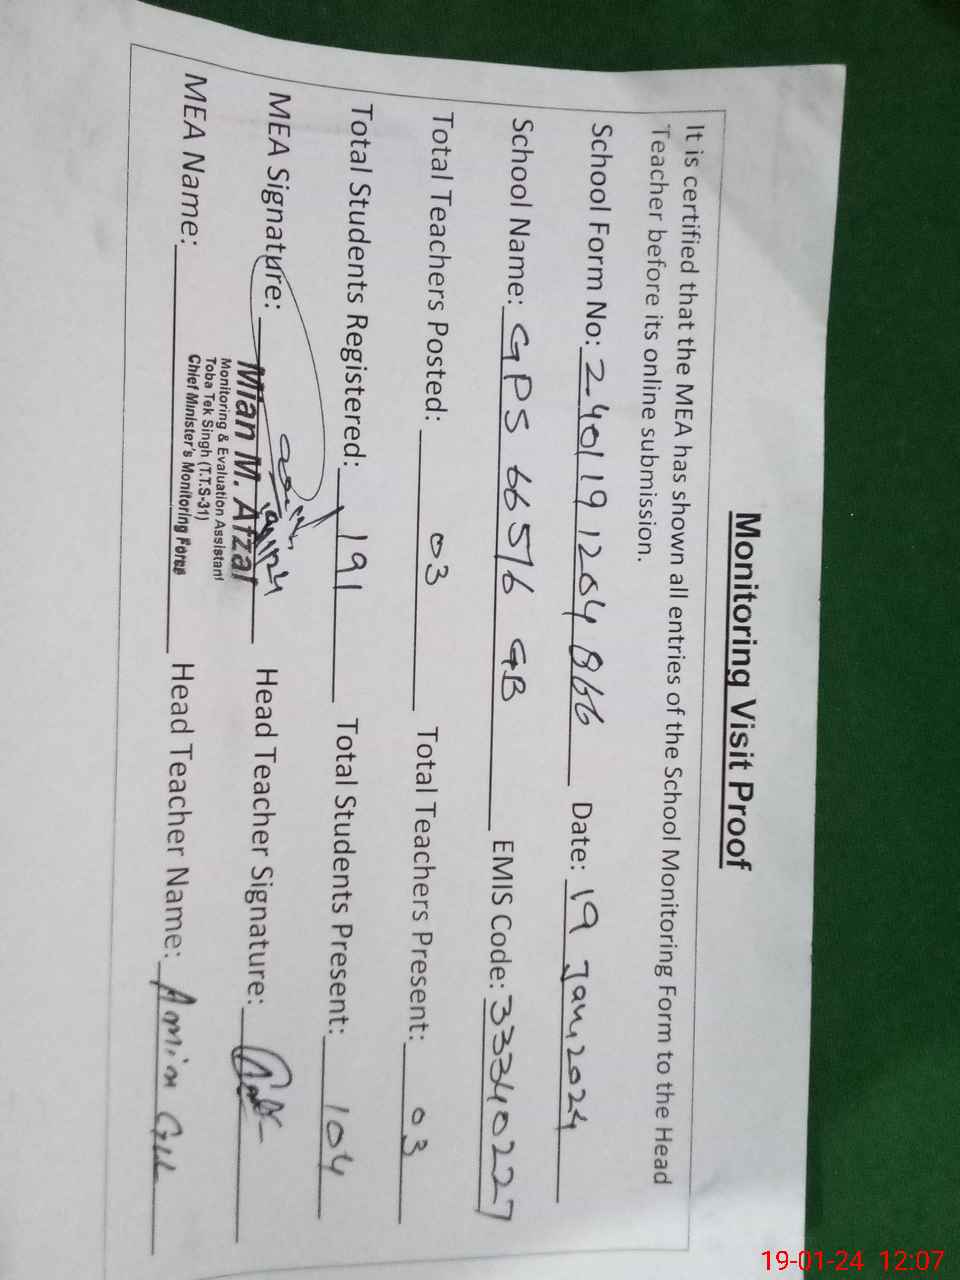 Monitoring Visit Proof
It is certified that the MEA has shown all entries of the School Monitoring Form to the Head
Teacher before its online submission.
School Form No: 2401191264866 Date: 19 Jan, 2024
School Name: GPS 665/6 GB EMIS Code: 33340227
Total Teachers Posted: 03 Total Teachers Present: 03
Total Students Registered: 191 Total Students Present: 104
MEA Signature: Head Teacher Signature:
Mian M. Afzal
Monitoring & Evaluation Assistant
Toba Tek Singh (T.T.S-31)
Chief Minister's Monitoring Force
MEA Name: Head Teacher Name: Amin Gul
19-01-24 12:07